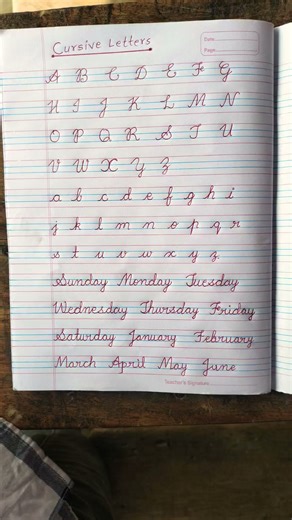 Cursive Letters
Date
Page
A B C D E F G
H I J K L M N
O P Q R S T U
V W X Y Z
a b c d e f g h i
j k l m n o p q r
s t u v w x y z
Sunday Monday Tuesday
Wednesday Thursday Friday
Saturday January February
March April May June
Teacher's Signature